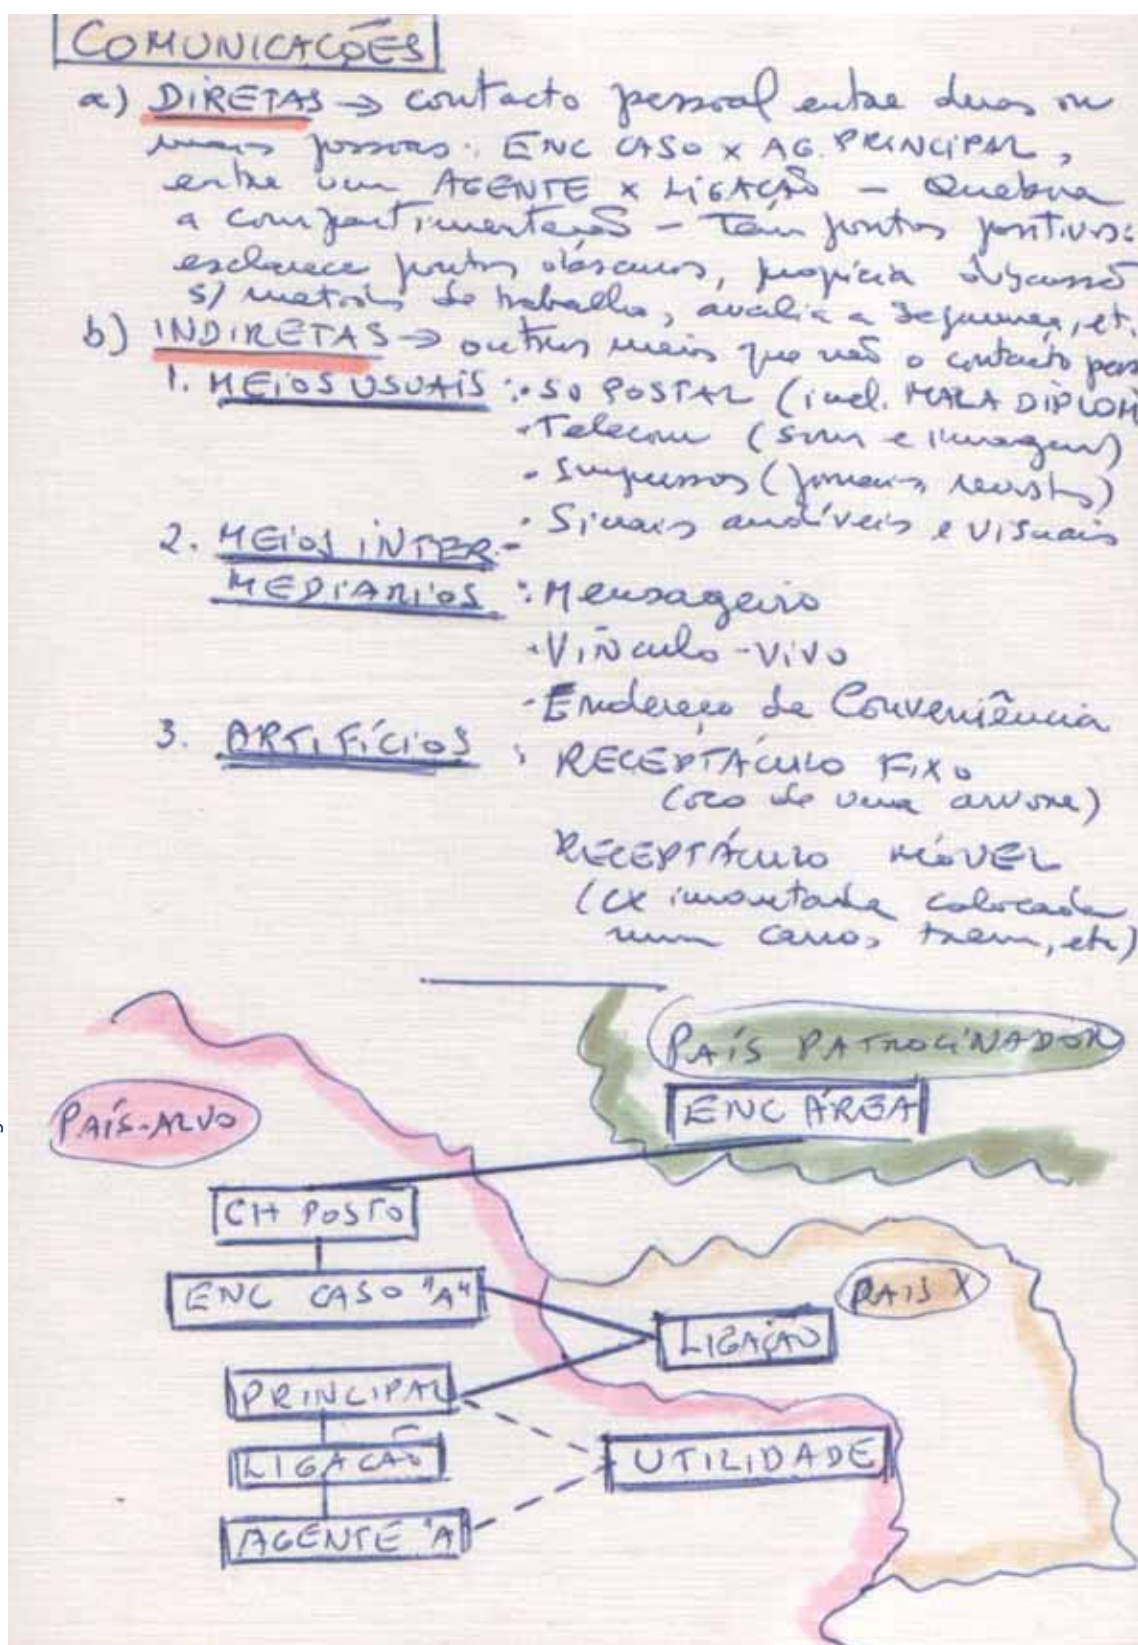 COMUNICAÇÕES
a) DIRETAS → contacto pessoal entre duas ou
mais pessoas: ENC CASO x AG. PRINCIPAL,
entre um AGENTE x LIGAÇÃO - Quebra
a compartimentação - Têm pontos positivos:
esclarece pontos obscuros, propicia discussão
s/ métodos de trabalho, avalia a segurança, etc.
b) INDIRETAS → outros meios que não o contacto pess
1. MEIOS USUAIS : • So POSTAL (incl. MALA DIPLOM
• Telecom (som e imagem)
• Impressos (jornais revistas)
• Sinais audíveis e visuais
2. MEIOS INTER-
MEDIÁRIOS : • Mensageiro
• Vínculo-Vivo
• Endereço de Conveniência
3. ARTIFÍCIOS : RECEPTÁCULO FIXO
(oco de uma arvore)
RECEPTÁCULO MÓVEL
(cx imantada colocada
num carro, trem, etc)
PAÍS PATROCINADOR
ENC ÁREA
PAÍS-ALVO
CH POSTO
ENC CASO "A"
PAIS X
LIGAÇÃO
PRINCIPAL
LIGACÃO
UTILIDADE
AGENTE "A"